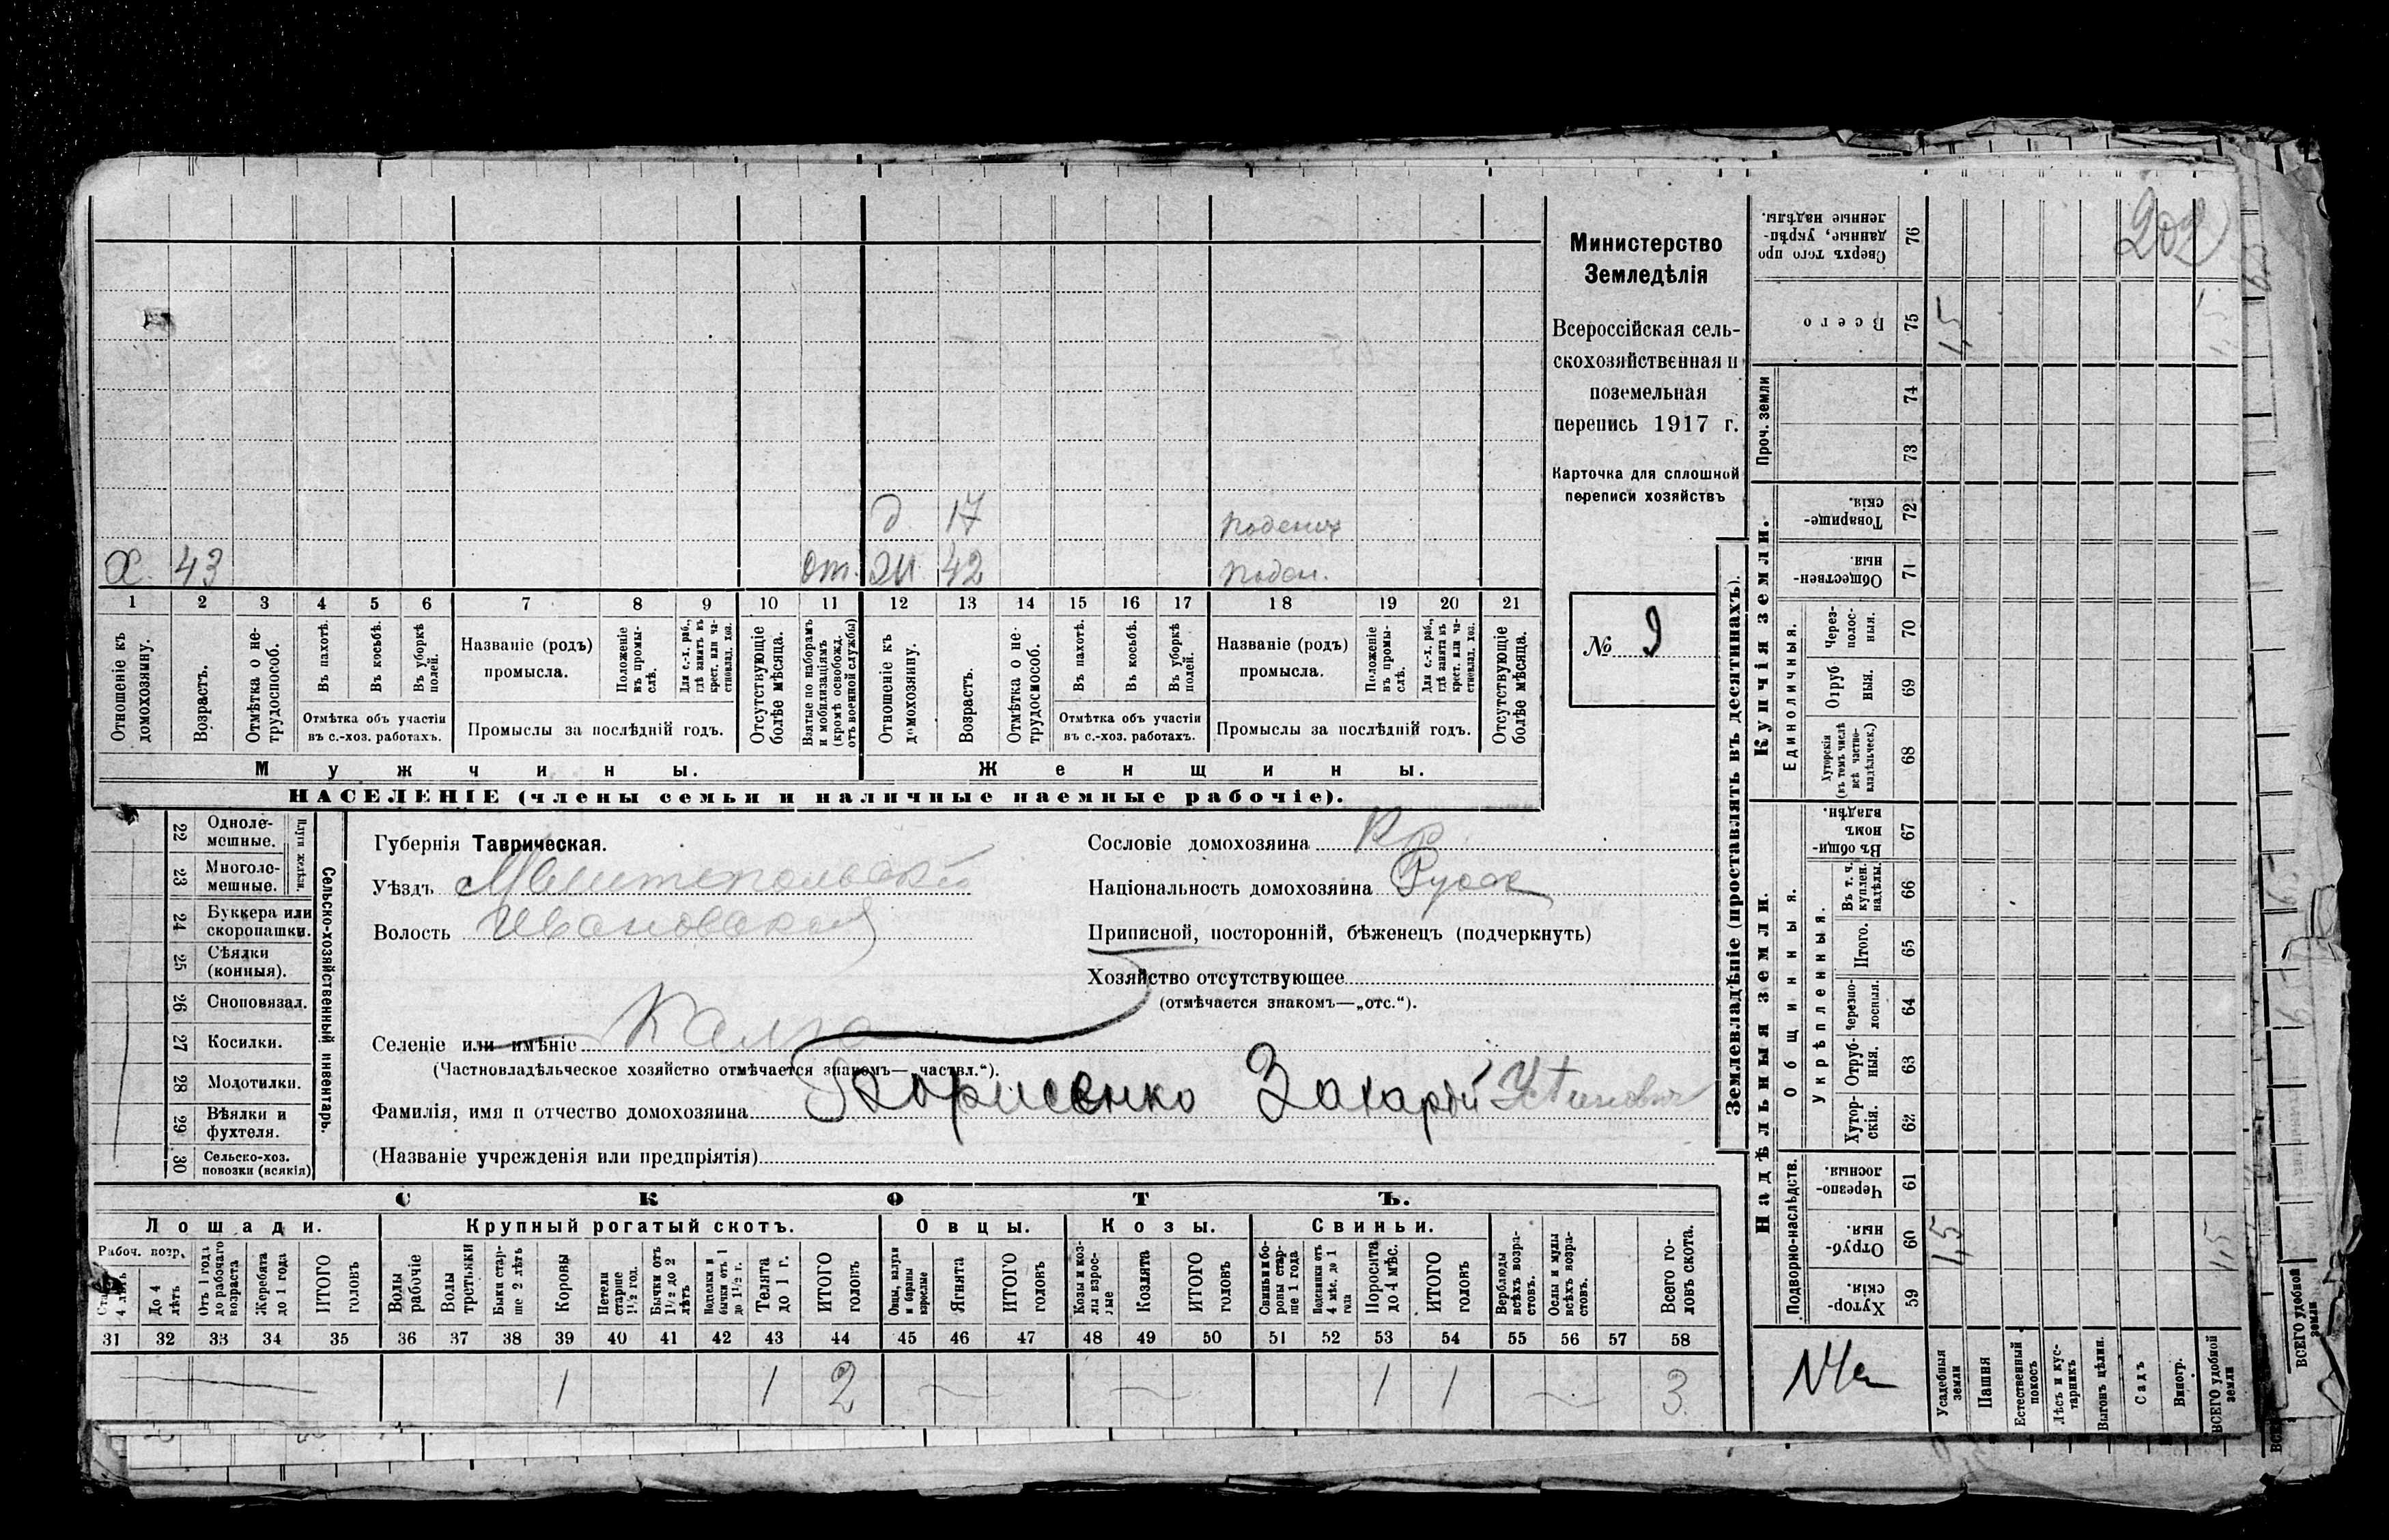 202
Министерство
Земледѣлія
Всероссійская сель-
скохозяйственная и
поземельная
перепись 1917 г.
Карточка для сплошной
переписи хозяйствъ
№ 9
д. 17
х. 43 от. 42
1 2 3 4 5 6 7 8 9 10 11 12 13 14 15 16 17 18 19 20 21
Отношеніе къ домохозяину.
Возрастъ.
Отмѣтка о не-трудоспособ.
Въ пахотѣ.
Въ косьбѣ.
Въ уборкѣ полей.
Отмѣтка объ участіи
въ с.-хоз. работахъ.
Названіе (родъ)
промысла.
Положеніе въ промы-слѣ.
Для с.-х. раб., гдѣ занятъ въ крест. или ча-стновлад. хоз.
Промыслы за послѣдній годъ.
Отсутствующіе болѣе мѣсяца.
Взятые по наборамъ и мобилизаціямъ (кромѣ освобожд. отъ военной службы)
Отношеніе къ домохозяину.
Возрастъ.
Отмѣтка о не-трудоспособ.
Въ пахотѣ.
Въ косьбѣ.
Въ уборкѣ полей.
Отмѣтка объ участіи
въ с.-хоз. работахъ.
Названіе (родъ)
промысла.
Положеніе въ промы-слѣ.
Для с.-х. раб., гдѣ занята въ крест. или ча-стновлад. хоз.
Промыслы за послѣдній годъ.
Отсутствующіе болѣе мѣсяца.
Мужчины.
Женщины.
НАСЕЛЕНІЕ (члены семьи и наличные наемные рабочіе).
22 Одноле-мешные.
23 Многоле-мешные.
Плуги желѣзн.
24 Буккера или скоропашки.
25 Сѣялки (конныя).
26 Сноповязал.
27 Косилки.
28 Молотилки.
29 Вѣялки и фухтеля.
30 Сельско-хоз. повозки (всякія)
Сельско-хозяйственный инвентарь.
Губернія Таврическая.
Уѣздъ Мелитопольский
Волость Ивановская
Селеніе или имѣніе
(Частновладѣльческое хозяйство отмѣчается знакомъ—„частвл.“).
Фамилія, имя и отчество домохозяина Борисенко Захарій Устинович
(Названіе учрежденія или предпріятія)
Сословіе домохозяина Кр.
Національность домохозяина Русск
Приписной, посторонній, бѣженецъ (подчеркнуть)
Хозяйство отсутствующее
(отмѣчается знакомъ—„отс.“).
СКОТЪ.
Лошади. Крупный рогатый скотъ. Овцы. Козы. Свиньи.
Рабоч. возр.
До 4 лѣтъ
Отъ 1 года до рабочаго возраста
Жеребята до 1 года
ИТОГО головъ
Волы рабочіе
Волы третьяки
Быки стар-ше 2 лѣтъ
Коровы
Нетели старше 1½ год.
Бычки отъ 1½ до 2 лѣтъ
Водделки и бычки отъ 1 до 1½ г.
Телята до 1 г.
ИТОГО головъ
Овцы, валухи и бараны взрослые
Ягнята
ИТОГО головъ
Козы и коз-лы взрос-лые
Козлята
ИТОГО головъ
Свиньи и бо-ровы стар-ше 1 года
Подсвинки отъ 4 мѣс. до 1 года
Поросята до 4 мѣс.
ИТОГО головъ
Верблюды всѣхъ возра-стовъ.
Ослы и мулы всѣхъ возра-стовъ.
Всего го-ловъ скота.
31 32 33 34 35 36 37 38 39 40 41 42 43 44 45 46 47 48 49 50 51 52 53 54 55 56 57 58
1 1 2 1 1 3
Землевладѣніе (проставлять въ десятинахъ).
Надѣльныя земли.
Купчія земли.
Проч. земли
Подворно-наслѣдств.
Общинныя.
Укрѣпленныя.
Единоличныя.
76 Сверхъ того про-данные, укрѣп-ленные надѣлы.
75 Всего
74
73
72 Товарище-скія.
71 Обществен-ныя.
70 Через-полос-ныя.
69 Отруб-ныя.
68 Хуторскія (въ томъ числѣ всѣ частно-владѣльческ.)
67 Въ общин-номъ владѣн.
66 Въ т. ч. куплен. надѣлы
65 Итого.
64 Черезпо-лосныя.
63 Отруб-ныя.
62 Хутор-скія.
61 Черезпо-лосныя.
60 Отруб-ныя.
59 Хутор-скія.
1,5
1,5
1,5
1,5
Усадебныя земли
Пашня
Естественный покосъ
Лѣсъ и кус-тарникъ
Выгонъ цѣлин.
Садъ
Виногр.
ВСЕГО удобной земли
ВСЕГО удобной земли